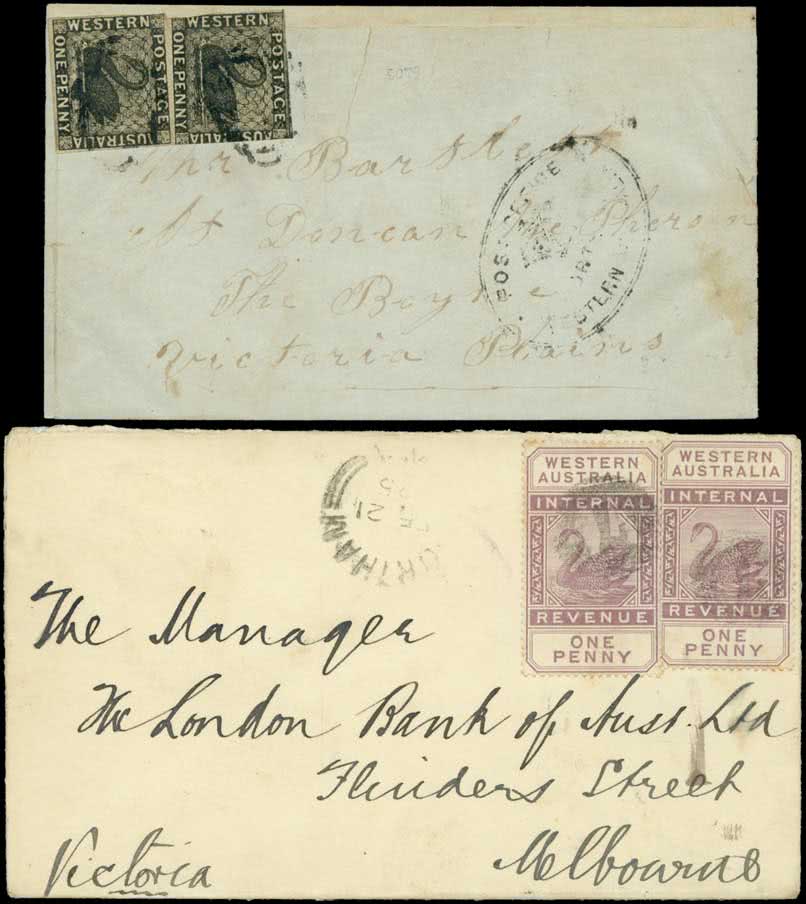 WESTERN
POSTAGE
AUSTRALIA
ONE PENNY
WESTERN
POSTAGE
AUSTRALIA
ONE PENNY
Mr Bartlett
At Doncan Mc Pherson
The Boyne
Victoria Plains
POST OFFICE
WESTERN
WESTERN
AUSTRALIA
INTERNAL
REVENUE
ONE
PENNY
WESTERN
AUSTRALIA
INTERNAL
REVENUE
ONE
PENNY
21
The Manager
The London Bank of Aust. Ltd
Flinders Street
Melbourne
Victoria